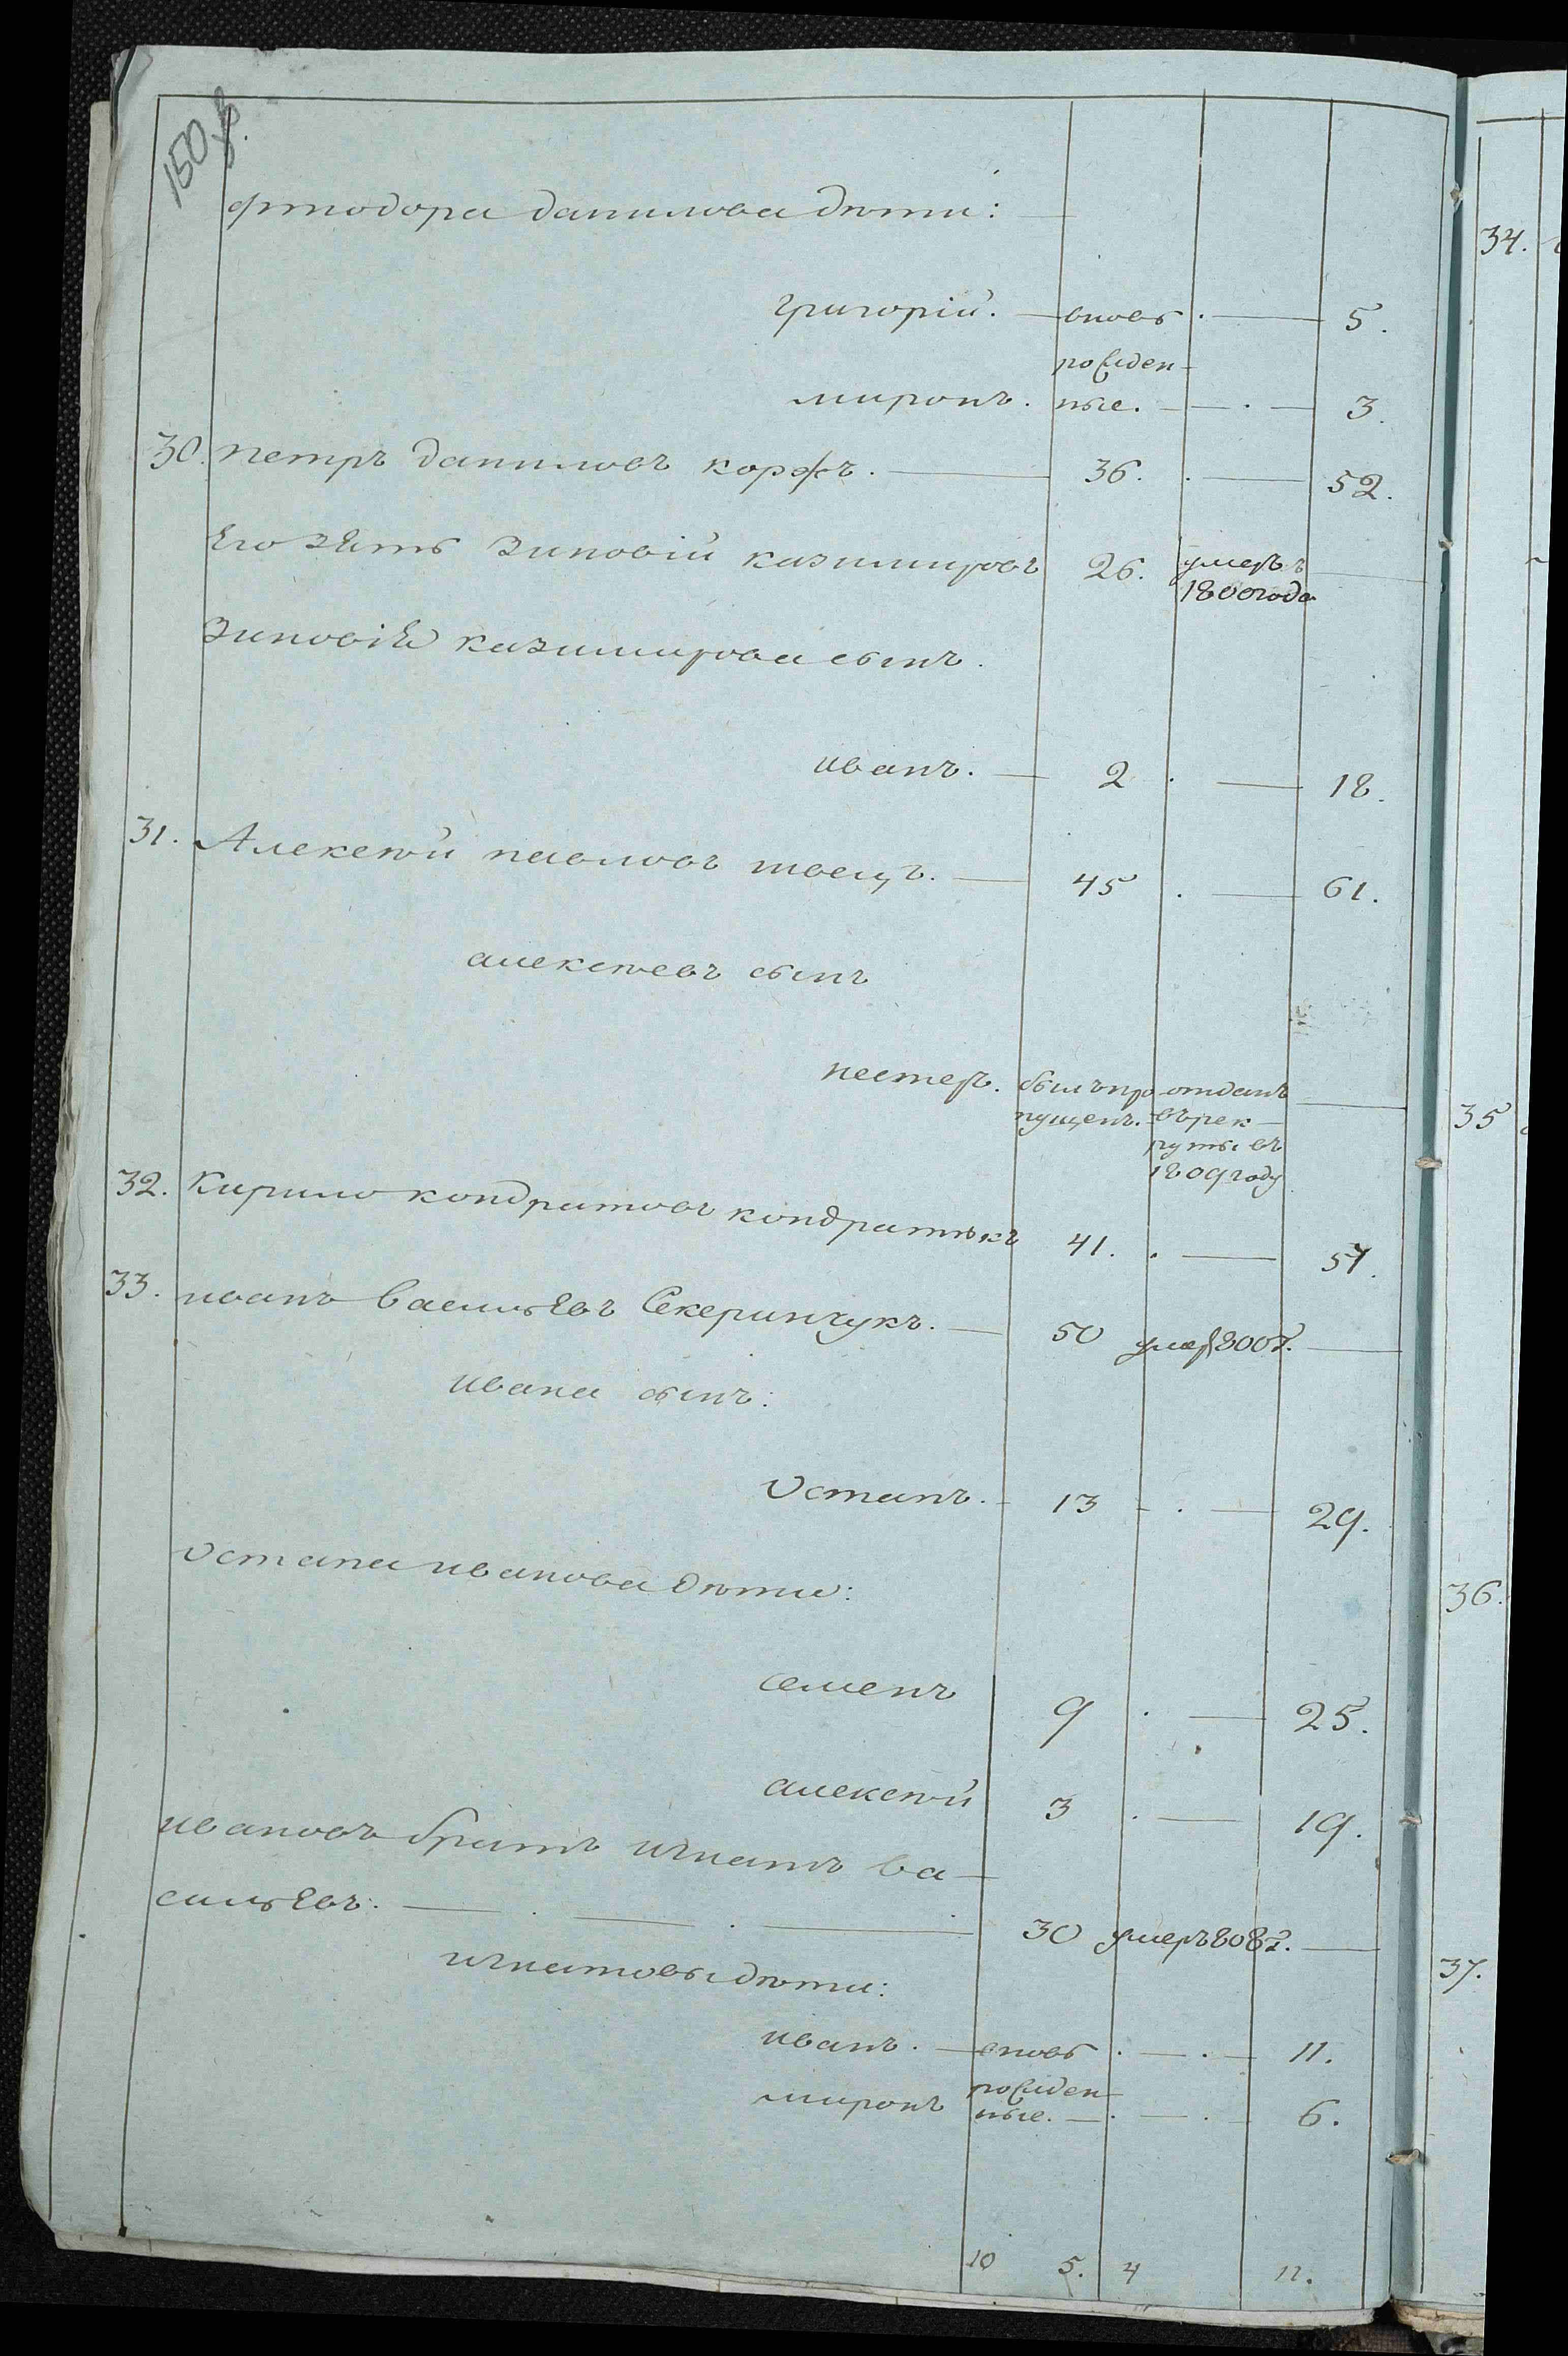 150 об.
Фтодора данилова дѣти:
григорій. вновь 5.
рожден-
миронъ. ные. 3.
30. петръ даниловъ коржъ. 36. 52.
Его зять Зиновій казимировъ 26. умеръ
1800 года
Зиновія казимирова сынъ.
иванъ. 2 18.
31. Алексѣй павловъ швецъ. 45 61.
алексѣевъ сынъ
нестеръ. былъ про отданъ
пущенъ. въ рек-
руты въ
1809 году
32. Кирило кондратовъ кондратюкъ 41. 57.
33. иванъ васильевъ Секеринчукъ. 50 умер 800 г.
ивана сынъ:
Остапъ. 13 29.
Остапа иванова дѣти:
семенъ 9 25.
алексѣй 3 19.
ивановъ братъ игнатъ ва-
сильевъ: 30 умеръ 808 г.
игнатовы дѣти:
иванъ. вновь 11.
рожден-
миронъ ные. 6.
10 5. 4 11.
34.
35
36.
37.